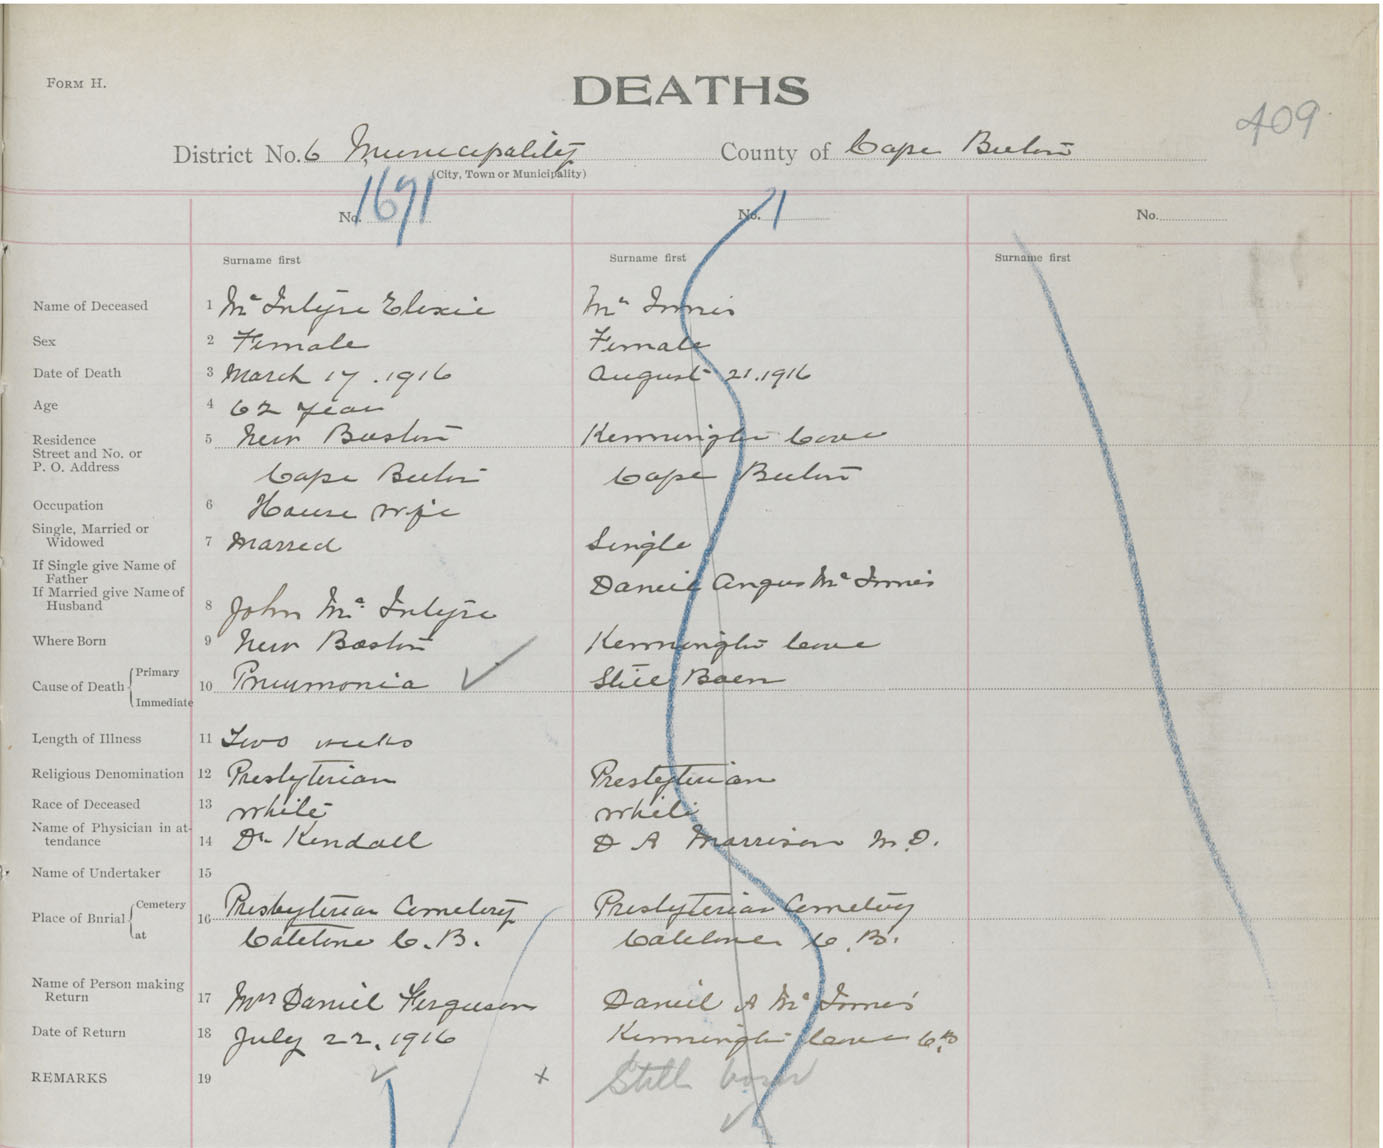 FORM H.
DEATHS
409
District No. 6 Municipality County of Cape Breton
(City, Town or Municipality)
No. 1671 No. 1 No.
Surname first Surname first Surname first
Name of Deceased 1 Mc Intyre Elexie Mc Innis
Sex 2 Female Female
Date of Death 3 March 17. 1916 August 21. 1916
Age 4 62 year
Residence
Street and No. or
P. O. Address
5 New Boston Kennington Cove
Cape Breton Cape Breton
Occupation 6 House wife
Single, Married or
Widowed
7 Marred Single
If Single give Name of
Father
If Married give Name of
Husband
Daniel Angus Mc Innis
8 John Mc Intyre
Where Born 9 New Boston Kennington Cove
Cause of Death Primary
Immediate
10 Pneumonia Still Born
Length of Illness 11 Two weeks
Religious Denomination 12 Presbyterian Presbyterian
Race of Deceased 13 white white
Name of Physician in at-
tendance
14 Dr Kendall D A Morrison M.D.
Name of Undertaker 15
Place of Burial Cemetery
at
16 Presbyterian Cemetery Presbyterian Cemetery
Catalone C.B. Catalone C.B.
Name of Person making
Return
17 Mrs Daniel Ferguson Daniel A Mc Innis
Date of Return 18 July 22, 1916 Kennington Cove C.B
REMARKS 19 x Still born